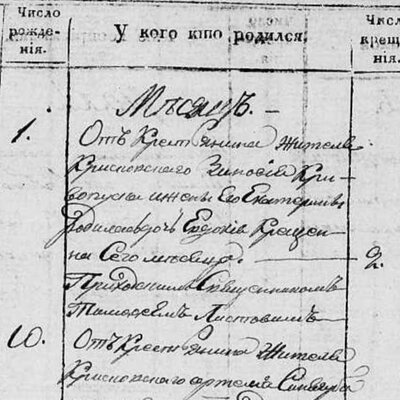 Число рожде-нія.
У кого кто родился.
Число крещенія.
Мѣсяцъ.
1.
Отъ Крестьянина жителя
Зиновія Кри-
вопуска и жены Его Екатерины
родилась дочь Евдокія Крещен-
на Сего мѣсяца
2.
Приходскимъ Священникомъ
Листовимъ
10.
Отъ Крестьянина Жителя